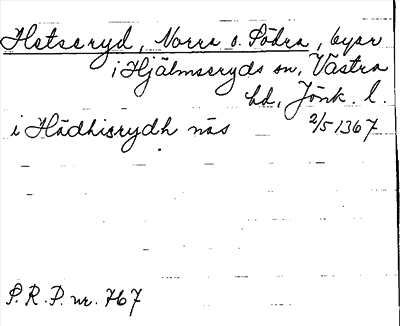 Hetseryd, Norra o. Södra, byar
i Hjälmseryds sn, Västra
hd, Jönk. l.
i Hædhisrydh næs 2/5 1367
S.R.P. nr. 767